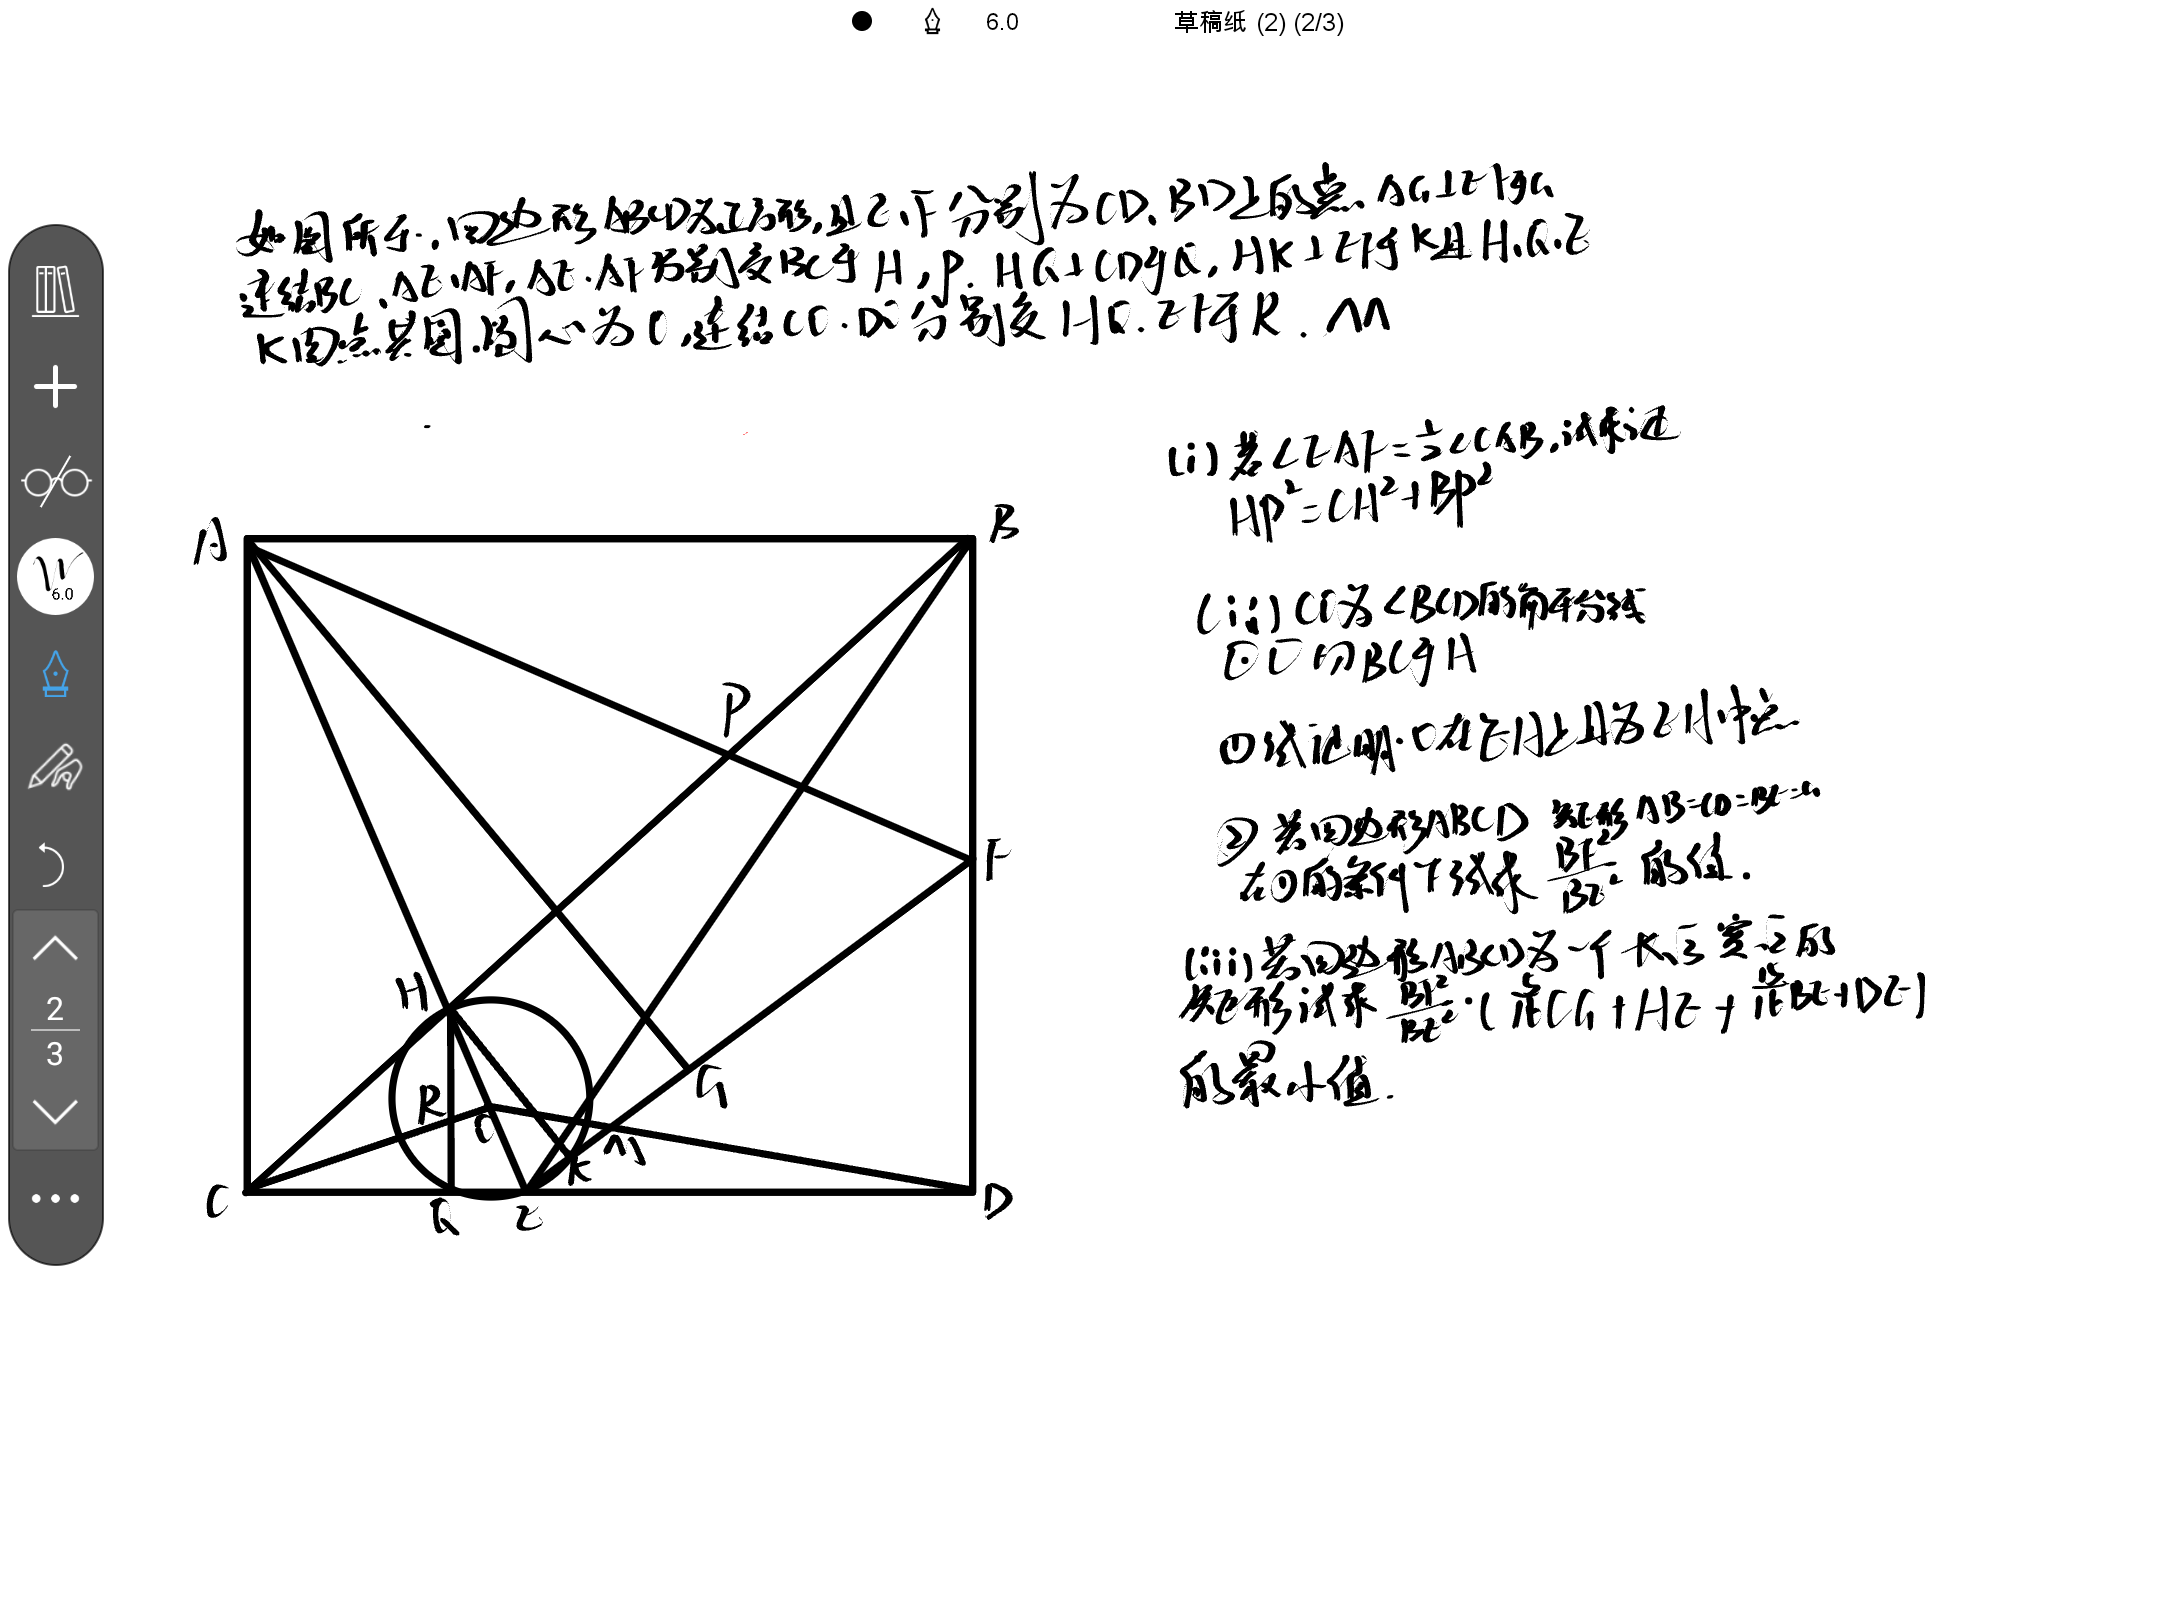 6.0
草稿纸 (2) (2/3)
如图所示,四边形ABCD为正方形,且E、F分别为CD、BD上的点、AG⊥EF于G
连结BC、AE、AF,AE、AF分别交BC于H,P. HQ⊥CD于Q, HK⊥EF于K且H、Q、E
K四点共圆.圆心为O,连结CO、DO分别交HQ、EF于R、M
(i) 若∠EAF=½∠CAB,试求证
HP²=CH²+BP²
(ii) CO为∠BCD的角平分线
⊙O切BC于H
① 试证明:O在EH上且为EH中点
② 若四边形ABCD 矩形 AB=CD=BE=
在①的条件下试求 BF²/BE² 的值.
(iii) 若四边形ABCD为一个长 宽 的
矩形试求 BF²/BE² · ( CG + HE + BE+DE)
的最小值.
A
B
P
F
H
G
R
O
M
K
C
Q
E
D
6.0
2
3